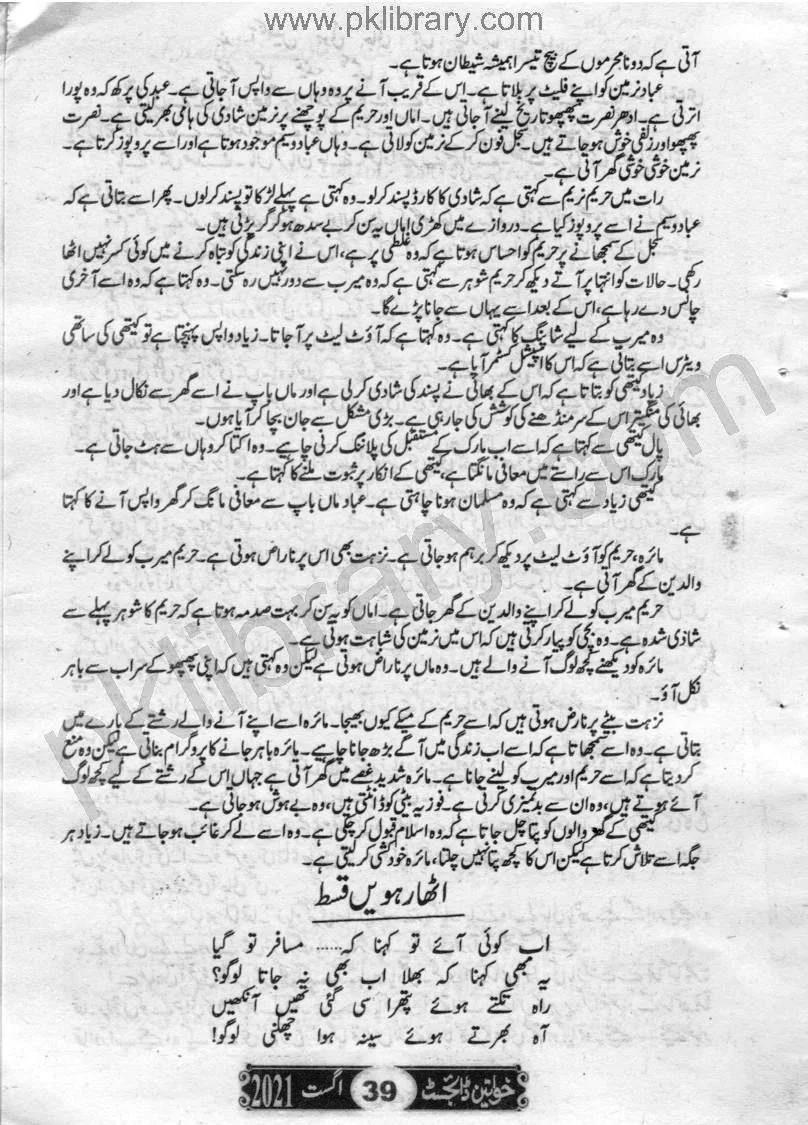 www.pklibrary.com
آتی ہے کہ دو نامحرموں کے بیچ تیسرا ہمیشہ شیطان ہوتا ہے۔
عباد نرمین کو اپنے فلیٹ پر بلاتا ہے۔ اس کے قریب آنے پر وہ وہاں سے واپس آ جاتی ہے۔ عبد کی پرکھ کہ وہ پورا
اترتی ہے۔ ادھر نصرت پھپھو تاریخ لینے آ جاتی ہیں۔ اماں اور حریم کے پوچھنے پر نرمین شادی کی ہامی بھر لیتی ہے۔ نصرت
پھپھو اور زلفی خوش ہو جاتے ہیں۔ سجل فون کر کے نرمین کو لاتی ہے۔ وہاں عباد وسیم موجود ہوتا ہے اور اسے پروپوز کرتا ہے۔
نرمین خوشی خوشی گھر آتی ہے۔
رات میں حریم نریم سے کہتی ہے کہ شادی کا کارڈ پسند کر لو۔ وہ کہتی ہے پہلے لڑکا تو پسند کر لوں۔ پھر اسے بتاتی ہے کہ
عباد وسیم نے اسے پروپوز کیا ہے۔ دروازے میں کھڑی اماں یہ سن کر بے سدھ ہو کر گر پڑتی ہیں۔
سجل کے سمجھانے پر حریم کو احساس ہوتا ہے کہ وہ غلطی پر ہے، اس نے اپنی زندگی کو تباہ کرنے میں کوئی کسر نہیں اٹھا
رکھی۔ حالات کو انتہا پر آتے دیکھ کر حریم شوہر سے کہتی ہے کہ وہ میرب سے دور نہیں رہ سکتی۔ وہ کہتا ہے کہ وہ اسے آخری
چانس دے رہا ہے، اس کے بعد اسے یہاں سے جانا پڑے گا۔
وہ میرب کے لیے شاپنگ کا کہتی ہے۔ وہ کہتا ہے کہ آؤٹ لیٹ پر آ جانا۔ زیاد واپس پہنچتا ہے تو کیتھی کی ساتھی
ویٹرس اسے بتاتی ہے کہ اس کا اسپیشل کسٹمر آیا ہے۔
زیاد کیتھی کو بتاتا ہے کہ اس کے بھائی نے پسند کی شادی کر لی ہے اور ماں باپ نے اسے گھر سے نکال دیا ہے اور
بھائی کی منگیتر اس کے سر منڈھنے کی کوشش کی جا رہی ہے۔ بڑی مشکل سے جان بچا کر آیا ہوں۔
پال کیتھی سے کہتا ہے کہ اسے اب مارک کے مستقبل کی پلاننگ کرنی چاہیے۔ وہ اکتا کر وہاں سے ہٹ جاتی ہے۔
مارک اس سے راستے میں معافی مانگتا ہے، کیتھی کے انکار پر ثبوت ملنے کا کہتا ہے۔
کیتھی زیاد سے کہتی ہے کہ وہ مسلمان ہونا چاہتی ہے۔ عباد ماں باپ سے معافی مانگ کر گھر واپس آنے کا کہتا
ہے۔
مائرہ، حریم کو آؤٹ لیٹ پر دیکھ کر برہم ہو جاتی ہے۔ نزہت بھی اس پر ناراض ہوتی ہے۔ حریم میرب کو لے کر اپنے
والدین کے گھر آتی ہے۔
حریم میرب کو لے کر اپنے والدین کے گھر جاتی ہے۔ اماں کو یہ سن کر بہت صدمہ ہوتا ہے کہ حریم کا شوہر پہلے سے
شادی شدہ ہے۔ وہ بچی کو پیار کرتی ہیں کہ اس میں نرمین کی شباہت ہوتی ہے۔
مائرہ کو دیکھنے کچھ لوگ آنے والے ہیں۔ وہ ماں پر ناراض ہوتی ہے لیکن وہ کہتی ہیں کہ اپنی پھپھو کے سراب سے باہر
نکل آؤ۔
نزہت بیٹے پر ناراض ہوتی ہیں کہ اسے حریم کے میکے کیوں بھیجا۔ مائرہ اسے اپنے آنے والے رشتے کے بارے میں
بتاتی ہے۔ وہ اسے سمجھاتا ہے کہ اسے اب زندگی میں آگے بڑھ جانا چاہیے۔ مائرہ باہر جانے کا پروگرام بناتی ہے لیکن وہ منع
کر دیتا ہے کہ اسے حریم اور میرب کو لینے جانا ہے۔ مائرہ شدید غصے میں گھر آتی ہے جہاں اس کے رشتے کے لیے کچھ لوگ
آئے ہوتے ہیں، وہ ان سے بدتمیزی کرتی ہے۔ فوزیہ بیٹی کو ڈانٹتی ہیں، وہ بے ہوش ہو جاتی ہے۔
کیتھی کے گھر والوں کو پتا چل جاتا ہے کہ وہ اسلام قبول کر چکی ہے۔ وہ اسے لے کر غائب ہو جاتے ہیں۔ زیاد ہر
جگہ اسے تلاش کرتا ہے لیکن اس کا کچھ پتا نہیں چلتا، مائرہ خودکشی کر لیتی ہے۔
اٹھارہویں قسط
اب کوئی آئے تو کہنا کہ...... مسافر تو گیا
یہ بھی کہنا کہ بھلا اب بھی نہ جاتا لوگو؟
راہ تکتے ہوئے پتھرا سی گئی تھیں آنکھیں
آہ بھرتے ہوئے سینہ ہوا چھلنی لوگو!
خواتین ڈائجسٹ 39 اگست 2021
pklibrary.com